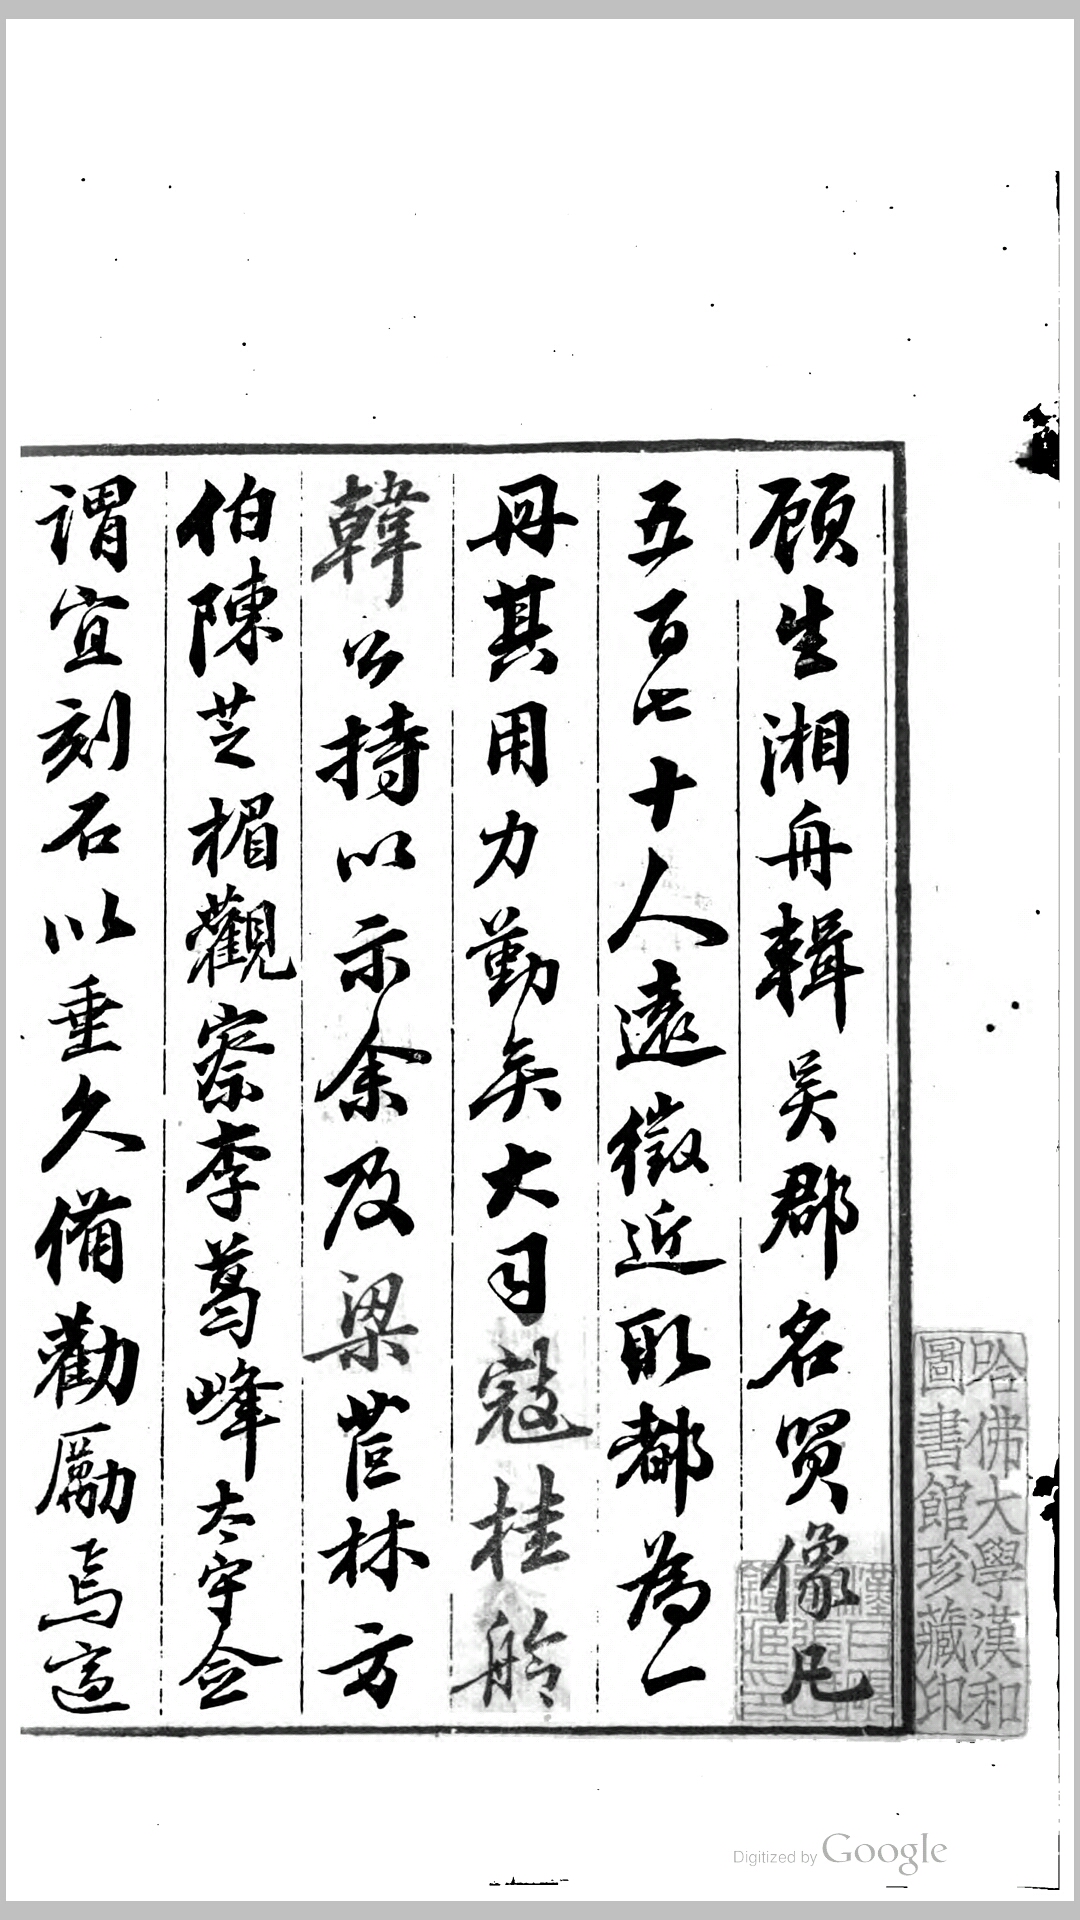 顾生湘舟輯吴郡名贤像凡
五百七十人遠徵近取都為一
冊其用力勤矣大司寇桂舲
韓公持以示余及梁茝林方
伯陳芝楣觀察李葛峰太守僉
謂宜刻石以垂久備勸勵焉這
哈佛大學漢和
圖書館珍藏印
Digitized by Google